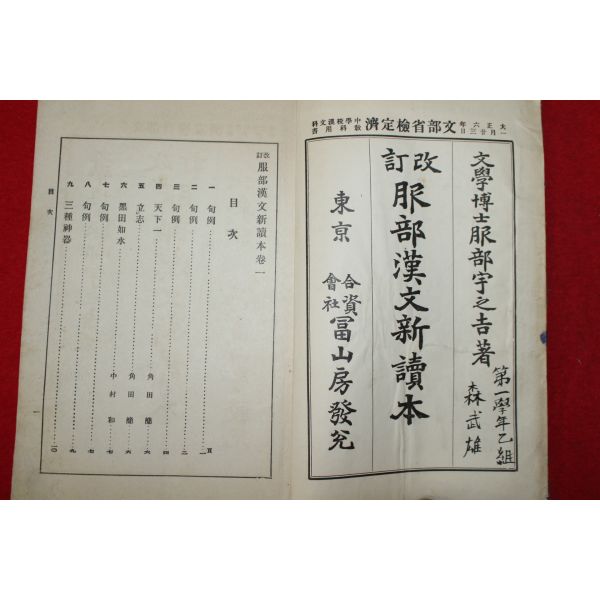 大正六年一月廿三日
文部省檢定濟
中學校漢文科敎科用書
文學博士服部宇之吉著
第一學年乙組
森武雄
改訂 服部漢文新讀本
東京
合資會社 冨山房發兌
改訂 服部漢文新讀本卷一
目次
一 句例
二 句例
三 句例
四 天下一 角田簡
五 立志 角田簡 六
六 黑田如水 中村和 七
七 句例 七
八 句例 九
九 三種神器 一〇
目次